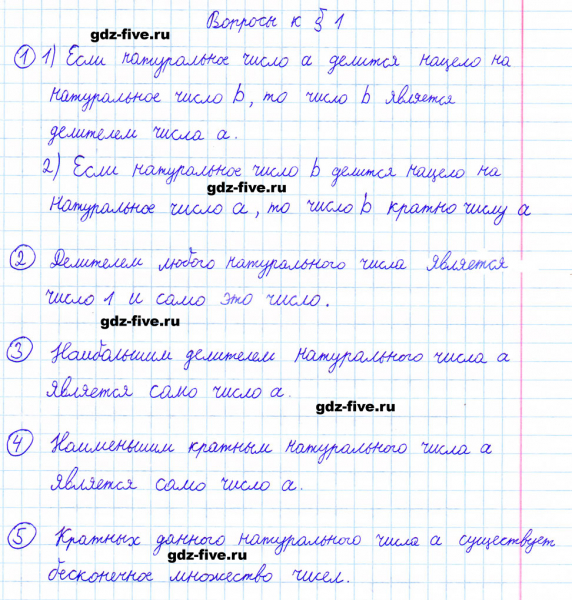 Вопросы к § 1
gdz-five.ru
1 1) Если натуральное число a делится нацело на
натуральное число b, то число b является
делителем числа a.
2) Если натуральное число b делится нацело на
gdz-five.ru
натуральное число a, то число b кратно числу a
2 Делителем любого натурального числа является
число 1 и само это число.
gdz-five.ru
3 Наибольшим делителем натурального числа a
является само число a.
gdz-five.ru
4 Наименьшим кратным натурального числа a
является само число a.
5 Кратных данного натурального числа a существует
gdz-five.ru
бесконечное множество чисел.